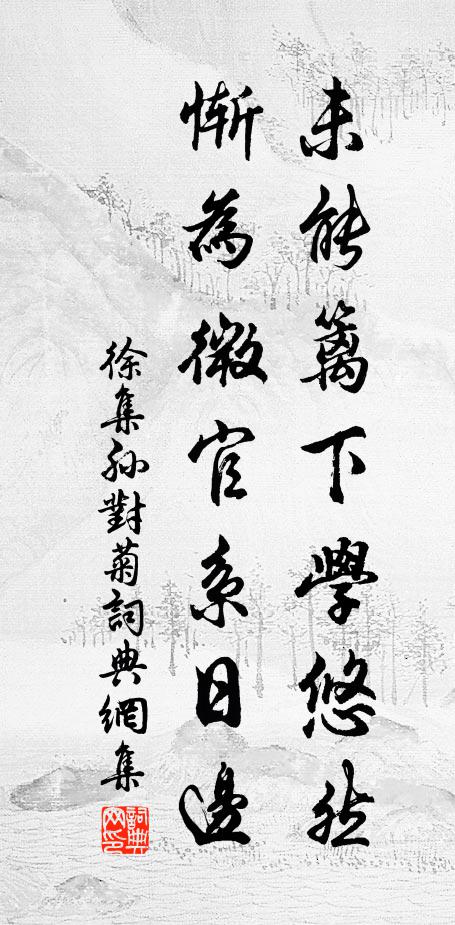 未能篱下學悠然
惭為微官系日邊
徐集孙對菊詞典網集
詞典网印